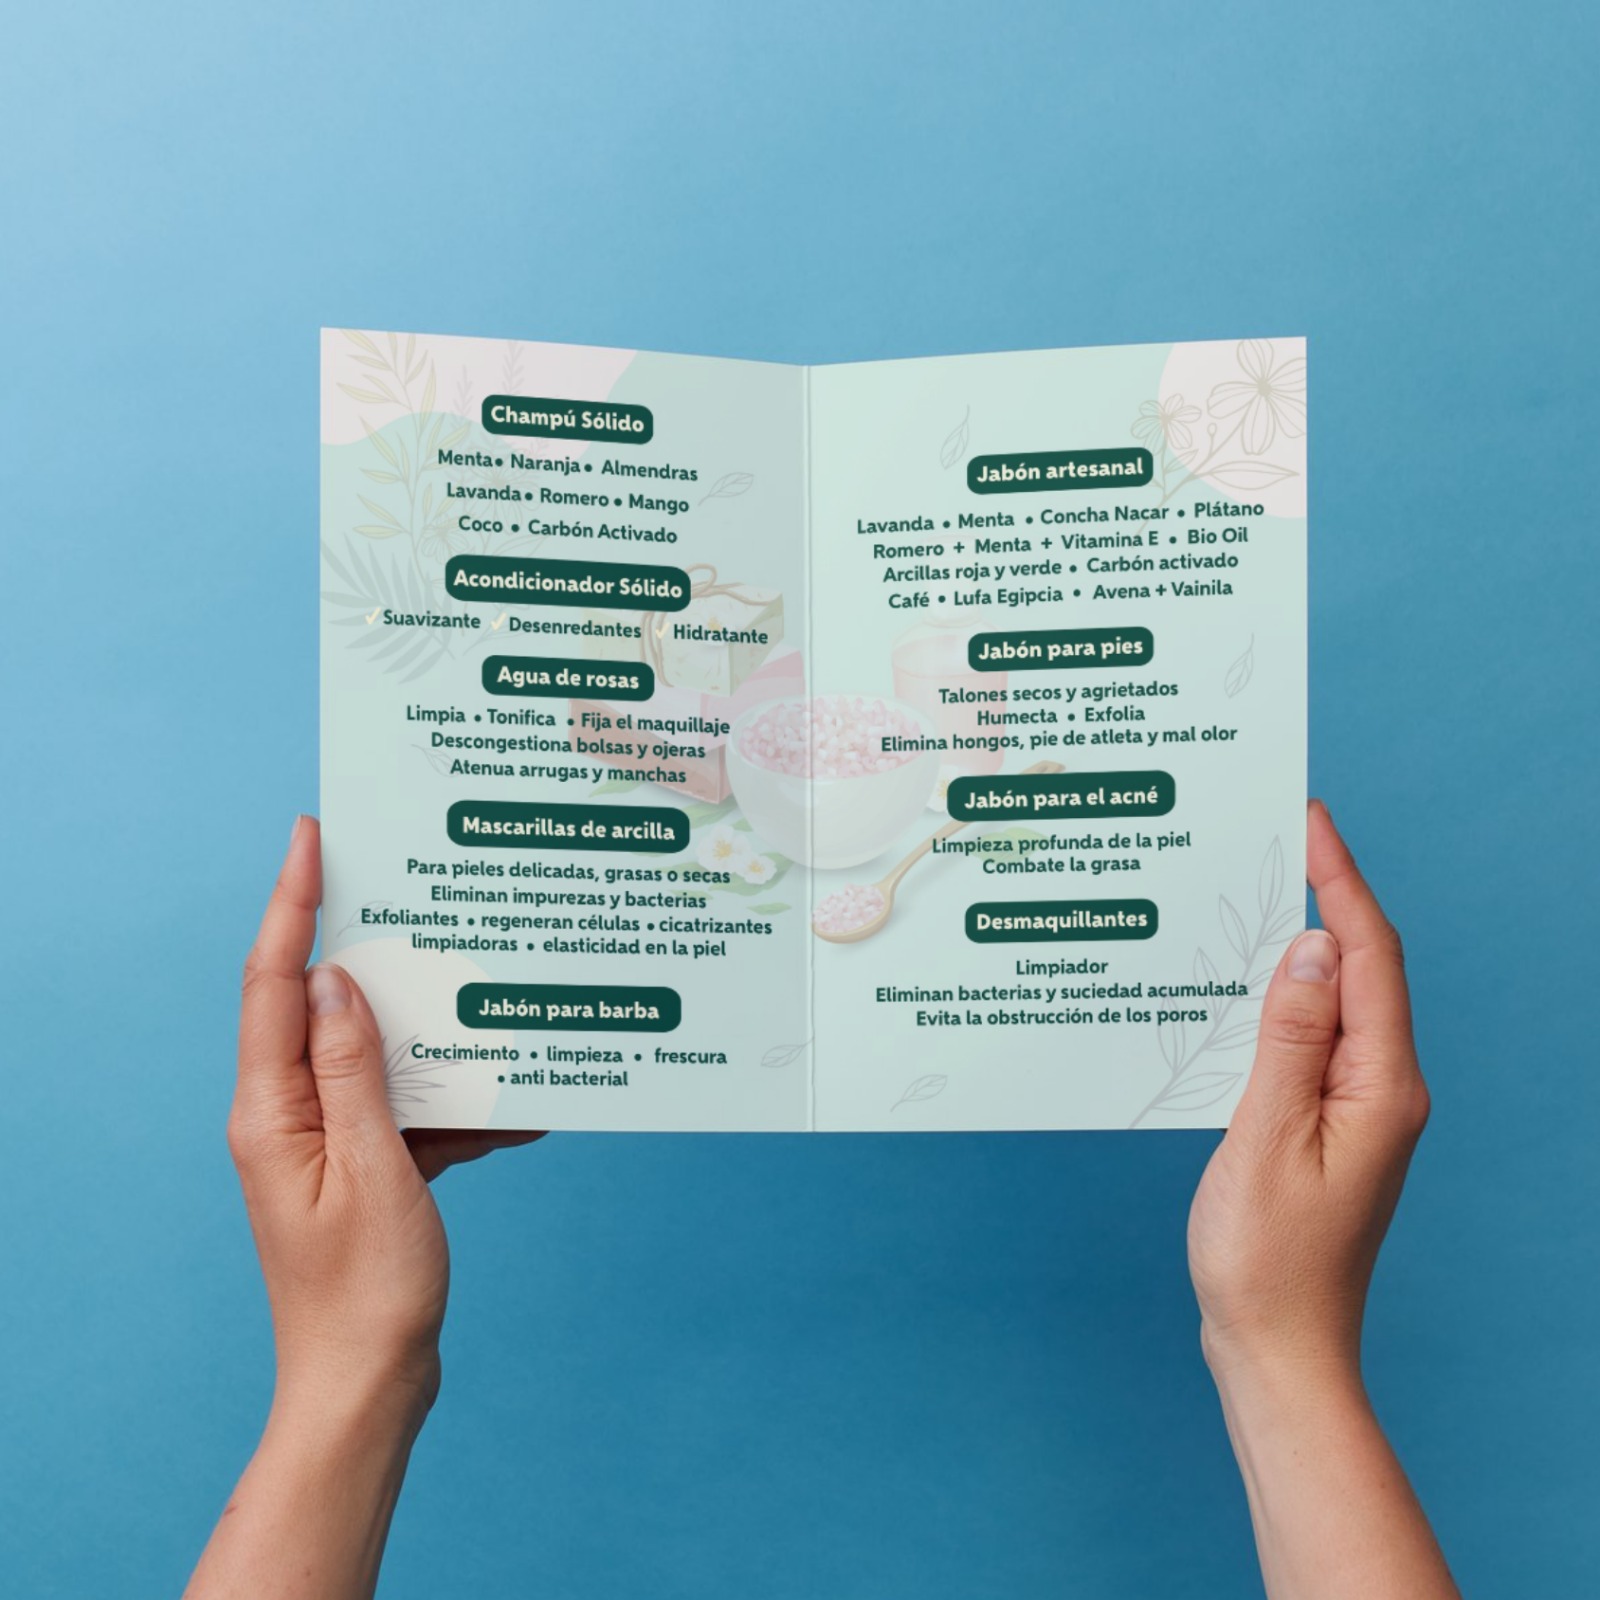 Champú Sólido
Menta• Naranja• Almendras
Lavanda• Romero • Mango
Coco • Carbón Activado
Acondicionador Sólido
✓Suavizante ✓Desenredantes ✓Hidratante
Agua de rosas
Limpia • Tonifica • Fija el maquillaje
Descongestiona bolsas y ojeras
Atenua arrugas y manchas
Mascarillas de arcilla
Para pieles delicadas, grasas o secas
Eliminan impurezas y bacterias
Exfoliantes • regeneran células • cicatrizantes
limpiadoras • elasticidad en la piel
Jabón para barba
Crecimiento • limpieza • frescura
• anti bacterial
Jabón artesanal
Lavanda • Menta • Concha Nacar • Plátano
Romero + Menta + Vitamina E • Bio Oil
Arcillas roja y verde • Carbón activado
Café • Lufa Egipcia • Avena + Vainila
Jabón para pies
Talones secos y agrietados
Humecta • Exfolia
Elimina hongos, pie de atleta y mal olor
Jabón para el acné
Limpieza profunda de la piel
Combate la grasa
Desmaquillantes
Limpiador
Eliminan bacterias y suciedad acumulada
Evita la obstrucción de los poros